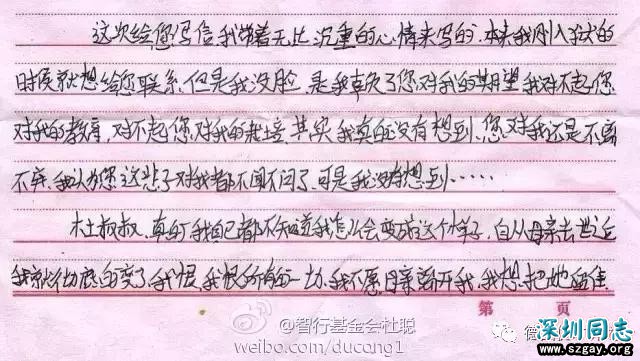 这次给您写信我带着无比沉重的心情来写的.本来我刚入狱的
时候就想给您联系.但是我没脸.是我辜负了您对我的期望我对不起您
对我的教育,对不起您对我的栽培.其实我真的没有想到.您对我还是不离
不弃.我认为您这辈子对我都不闻不问了.可是我没有想到……
杜叔叔.真的我自己都不知道我怎么会变成这个样子,自从母亲去世之后
我就彻底的变了.我恨,我恨所有的一切.我不愿母亲离开我,我想把她
第 页
@智行基金会杜聪
weibo.com/ducong1
深圳同志
www.szgay.org